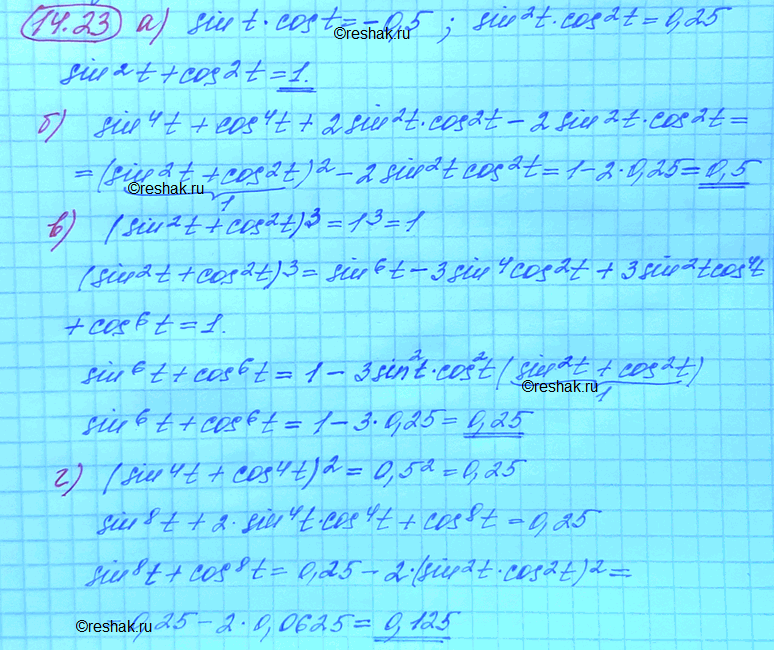 14.23 а) sin t · cos t = -0,5 ; sin²t · cos²t = 0,25
©reshak.ru
sin²t + cos²t = 1.
б) sin⁴t + cos⁴t + 2sin²t · cos²t - 2sin²t · cos²t =
= (sin²t + cos²t)² - 2sin²t cos²t = 1 - 2 · 0,25 = 0,5
©reshak.ru
1
в) (sin²t + cos²t)³ = 1³ = 1
(sin²t + cos²t)³ = sin⁶t - 3sin⁴cos²t + 3sin²tcos⁴t
+ cos⁶t = 1.
sin⁶t + cos⁶t = 1 - 3sin²t · cos²t (sin²t + cos²t)
©reshak.ru
1
sin⁶t + cos⁶t = 1 - 3 · 0,25 = 0,25
г) (sin⁴t + cos⁴t)² = 0,5² = 0,25
sin⁸t + 2 · sin⁴t · cos⁴t + cos⁸t = 0,25
sin⁸t + cos⁸t = 0,25 - 2 · (sin²t · cos²t)² =
= 0,25 - 2 · 0,0625 = 0,125
©reshak.ru
©reshak.ru